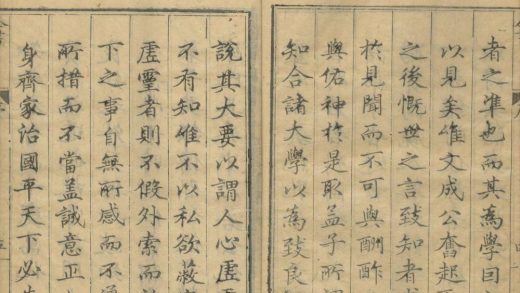 者之準也而其為學回
以見矣惟文成公奮起
之後慨世之言致知者求
於見聞而不可與酬酢
與佑神於是取孟子所謂
知合諸大學以為致良
說其大要以謂人心虛
不有知惟不以私欲蔽
虛靈者則不假外索而
下之事自無所感而不通
所措而不當蓋誠意正
身齊家治國平天下必